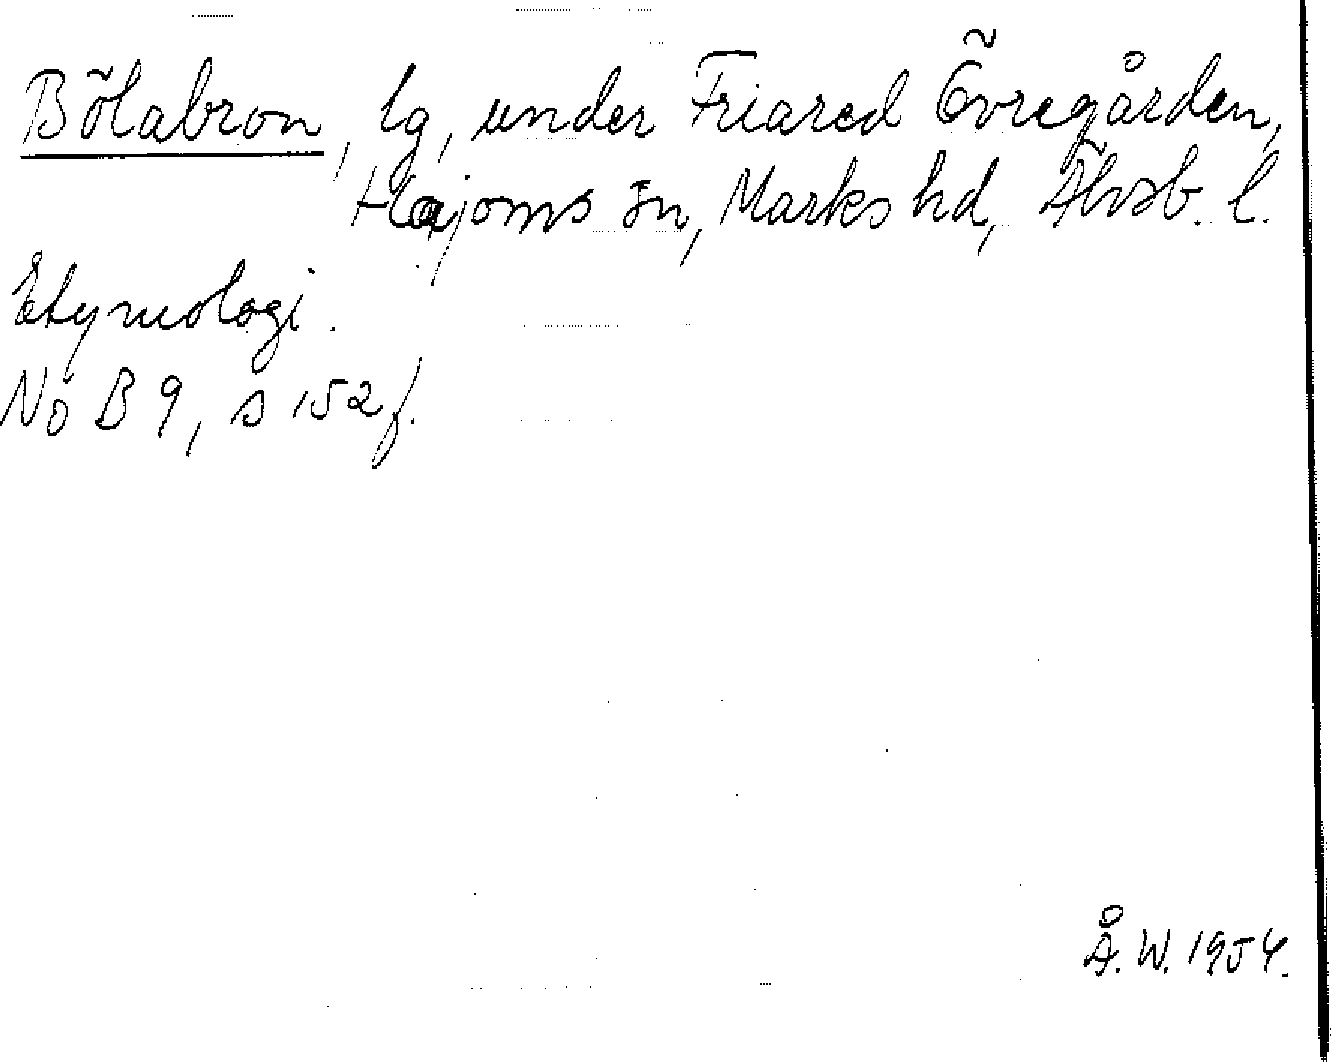 Bölabron, lg, under Friared Övregården,
Hajoms sn, Marks hd, Älvsb. l.
Etymologi.
NoB 9, s 152 f.
Å. W. 1954.